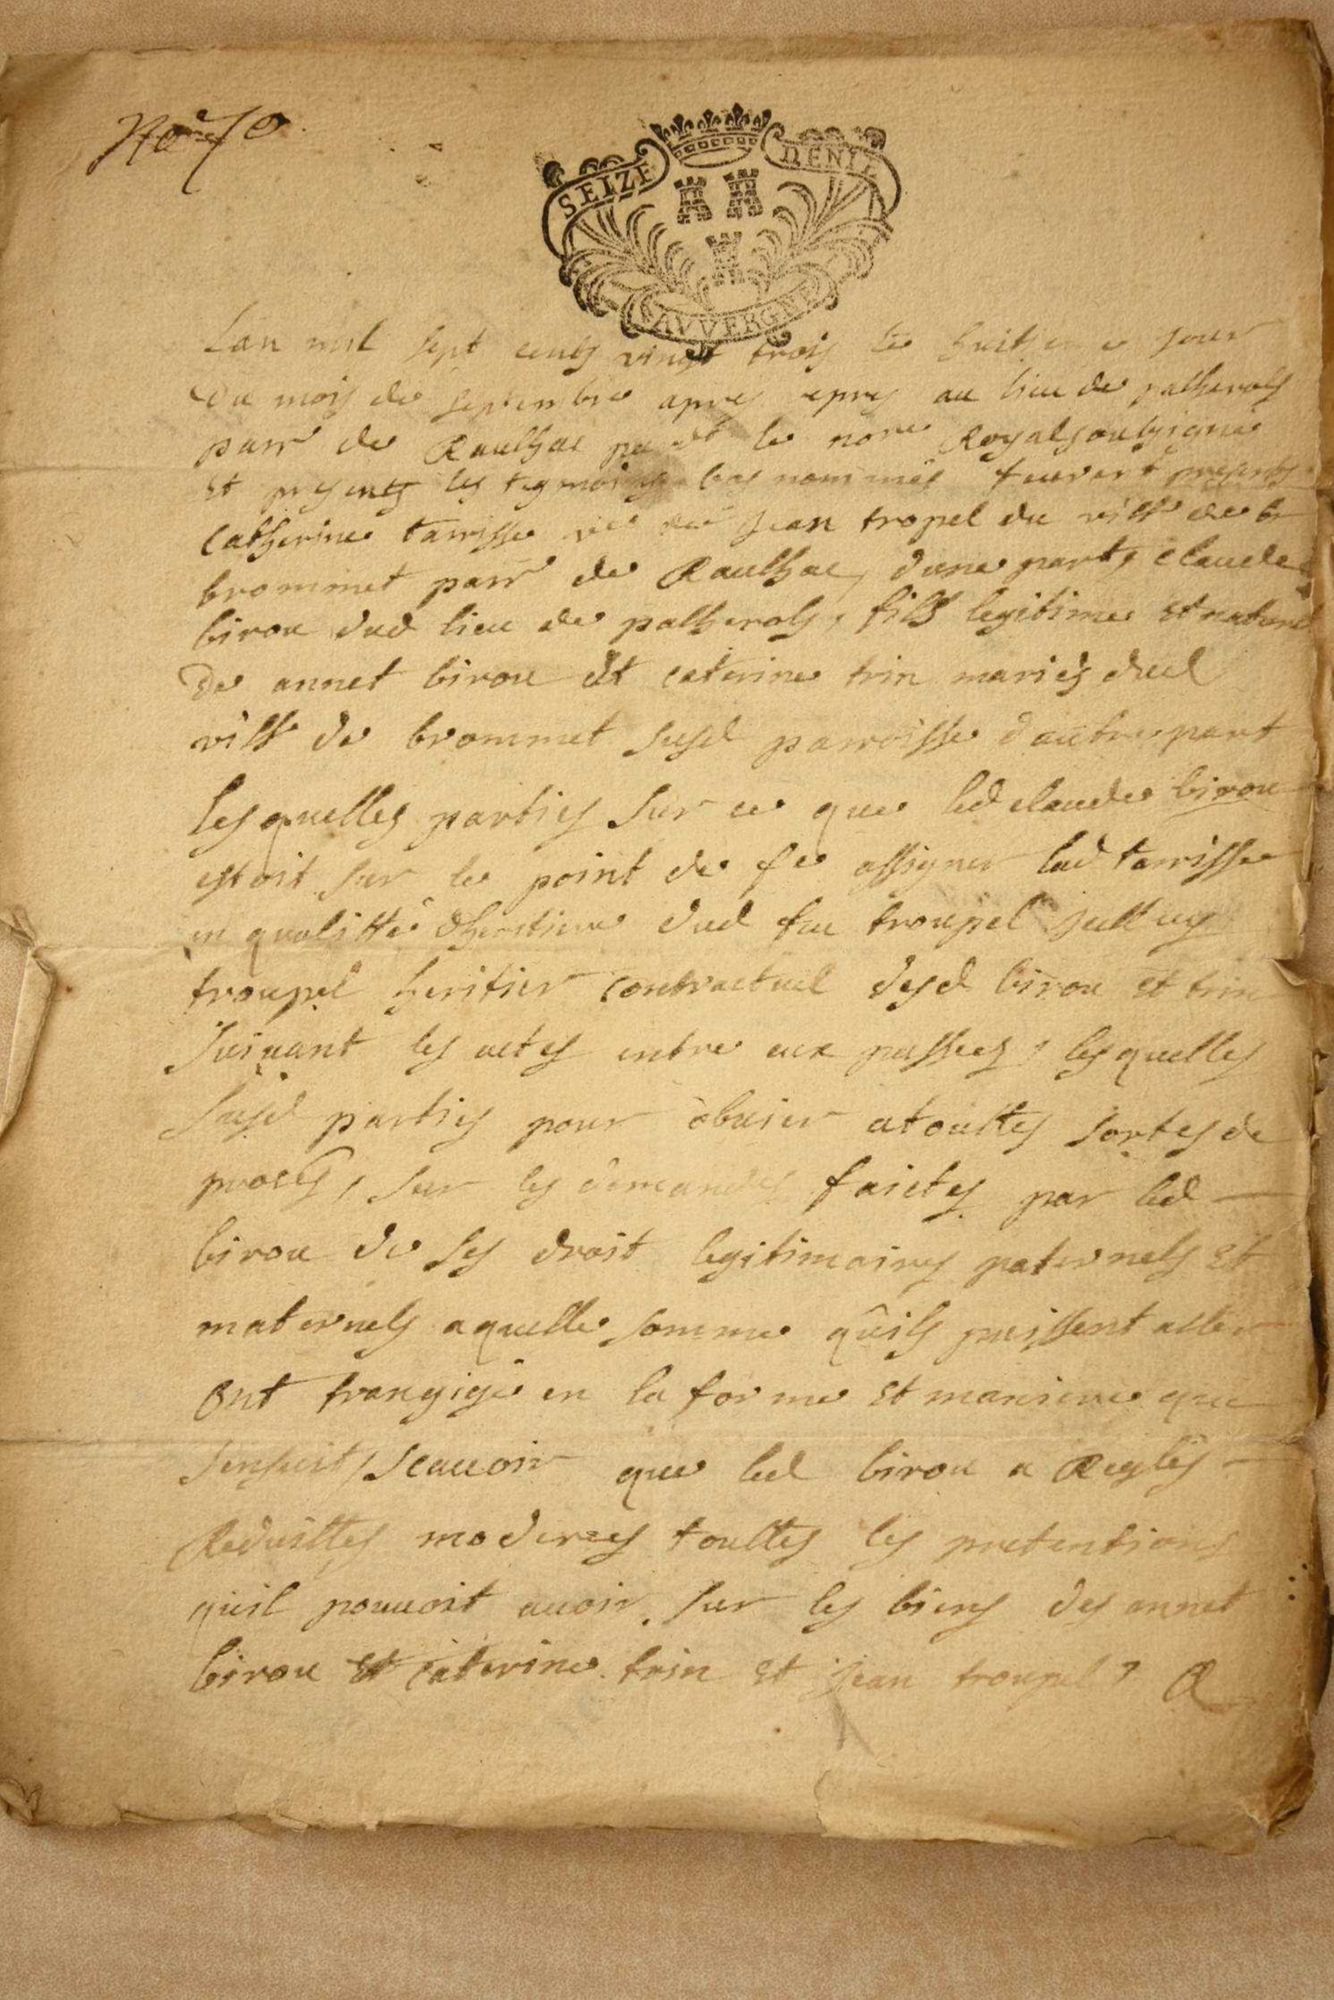 No 70
SEIZE DENIE
AVVERGNE
Lan mil sept cents vingt trois le huitieme jour
du mois de septembre apres au lieu de palherols
parr de Raulhac le nore Royal soubsigné
et presents les tesmoings bas nommés feurent presents
Catherine tarrisse ve de Jean tropel du vill de
brommet parr de Raulhac, dune part, claude
birou dud lieu de palherols, fils legitime et naturel
de annet birou et caterine trin mariés dud
vill de brommet susd parroisse dautre part
lesquelles parties sur ce que led claude birou
estoit sur le point de fe assigner lad tarrisse
en qualitté dheretiere dud feu troupel
troupel heritier contractuel desd birou et trin
suivant les actes entre eux passees, lesquelles
susd parties pour obuier atouttes sortes de
procés, sur les demandes faictes par led
birou de ses droit legitimaires paternels et
maternels aquelle somme quils puissent aller
Ont transigé en la forme et maniere que
sensuit, scauoir que led birou a Reglés
Reduittes moderees touttes les pretentions
quil pouuoit auoir sur les biens des annet
birou et caterine trin et jean troupel, a